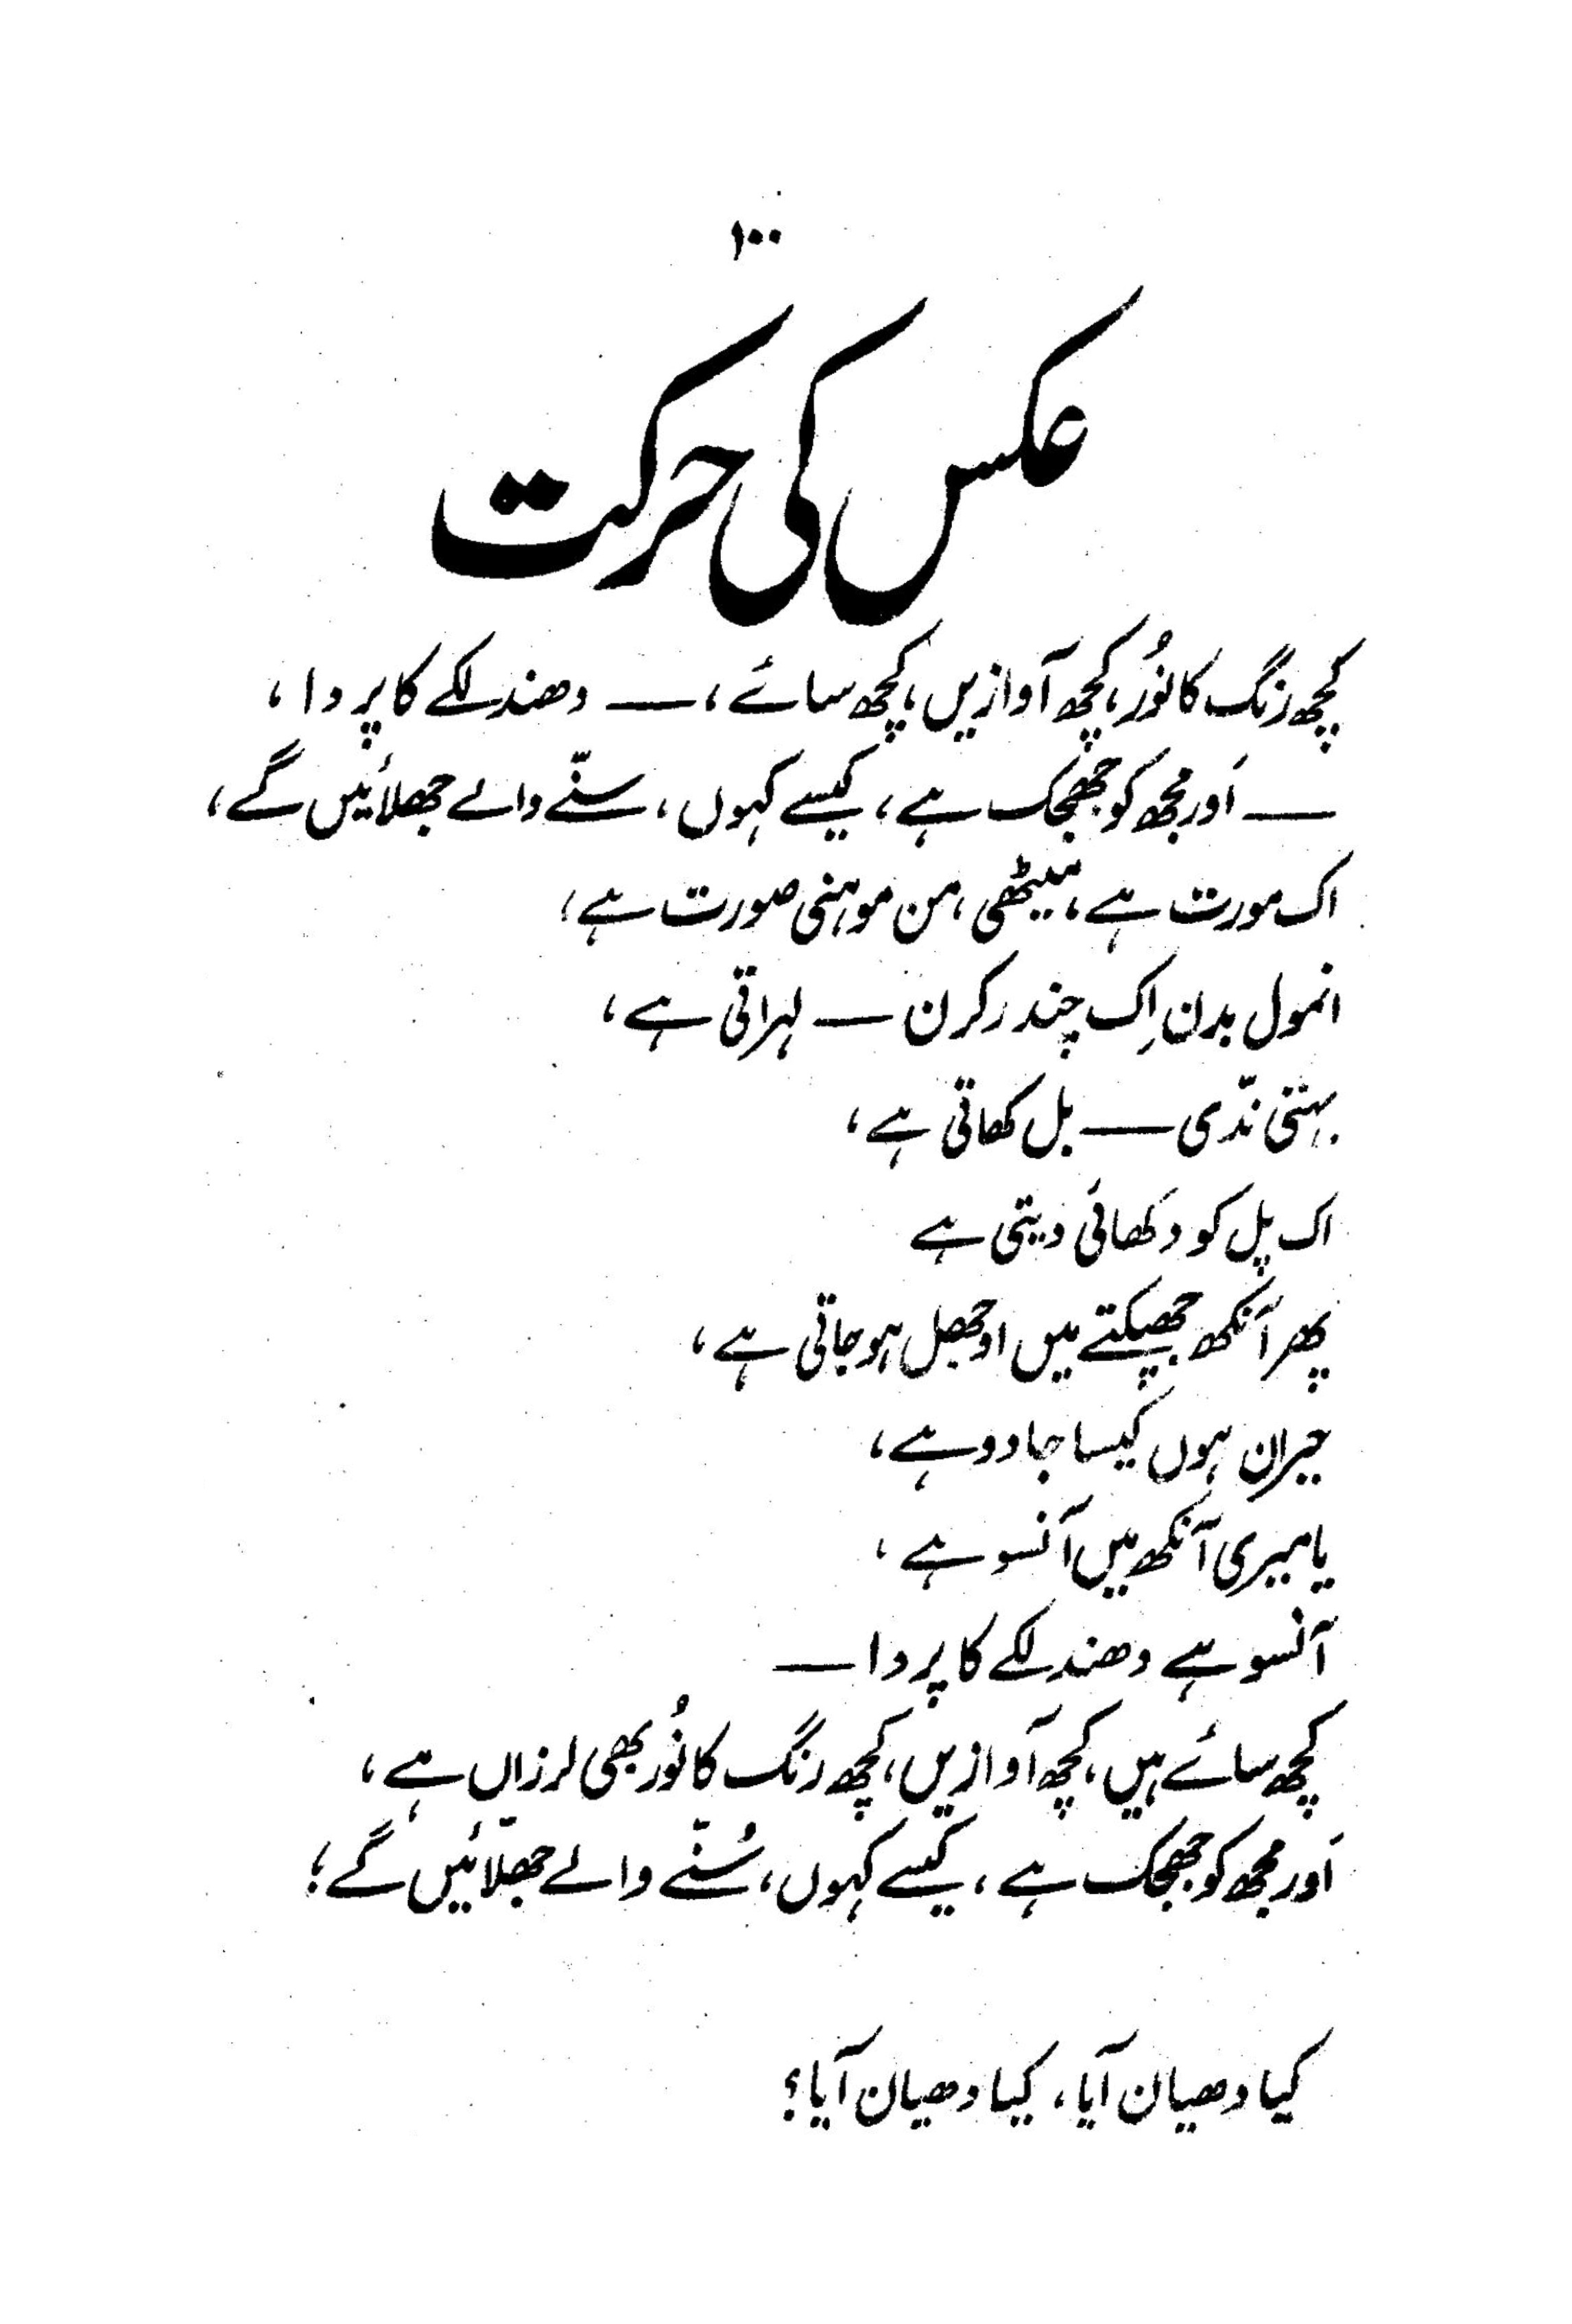 ۱۰۰
عکس کی حرکت
کچھ رنگ کا نُور، کچھ آوازیں، کچھ سائے، — دھندلکے کا پردا،
— اَور مجھ کو جھجک ہے، کیسے کہوں، سنّے والے جھلائیں گے،
اک مورت ہے، میٹھی، من موہنی صورت ہے،
انمول بدن اِک چندر کرن — لہراتی ہے،
بہتی ندّی — بل کھاتی ہے،
اک پل کو دکھائی دیتی ہے
پھر آنکھ جھپکتے میں اوجھل ہو جاتی ہے،
حیران ہوں کیسا جادو ہے،
یا میری آنکھ میں آنسو ہے،
آنسو ہے دھندلکے کا پردا —
کچھ سائے ہیں، کچھ آوازیں، کچھ رنگ کا نُور بھی لرزاں ہے،
اَور مجھ کو جھجک ہے، کیسے کہوں، سُنّے والے جھلّائیں گے؛
کیا دھیان آیا، کیا دھیان آیا؟